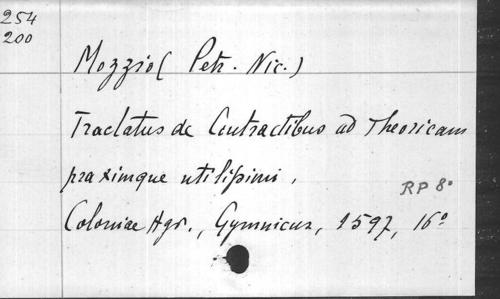 254
200
Mozzio ( Petr. Nic. )
Tractatus de Contractibus ad Theoricam
praximque utilissimi .
RP 8º
Coloniae Agr. , Gymnicus, 1597, 16º